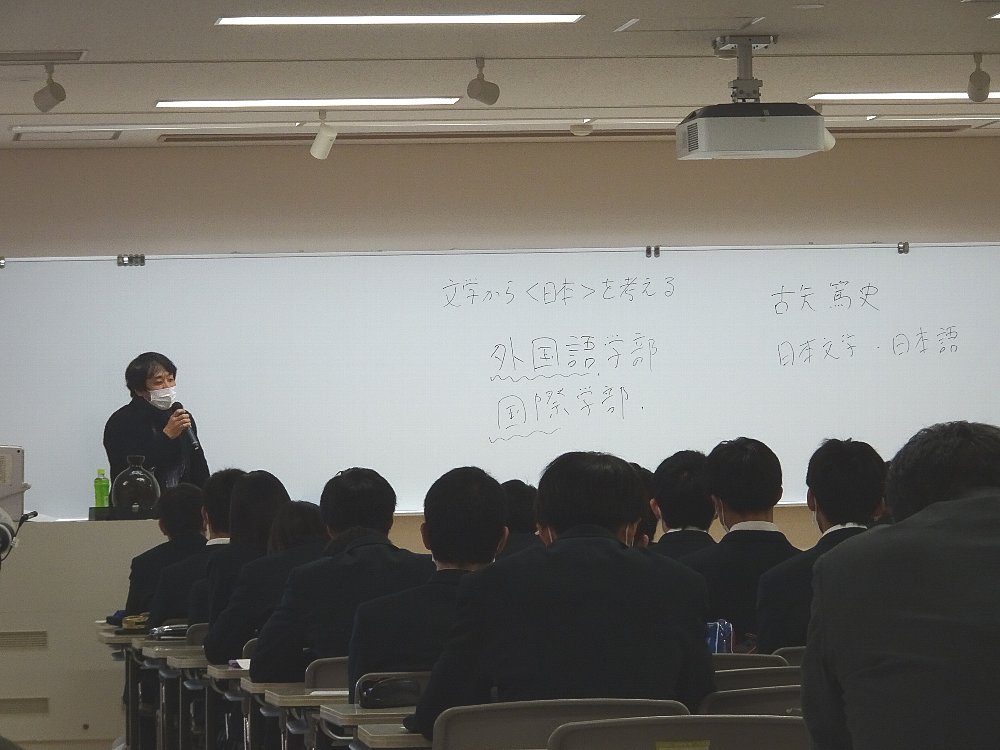 文学から<日本>を考える
外国語学部
国際学部.
古矢 篤史
日本文学・日本語